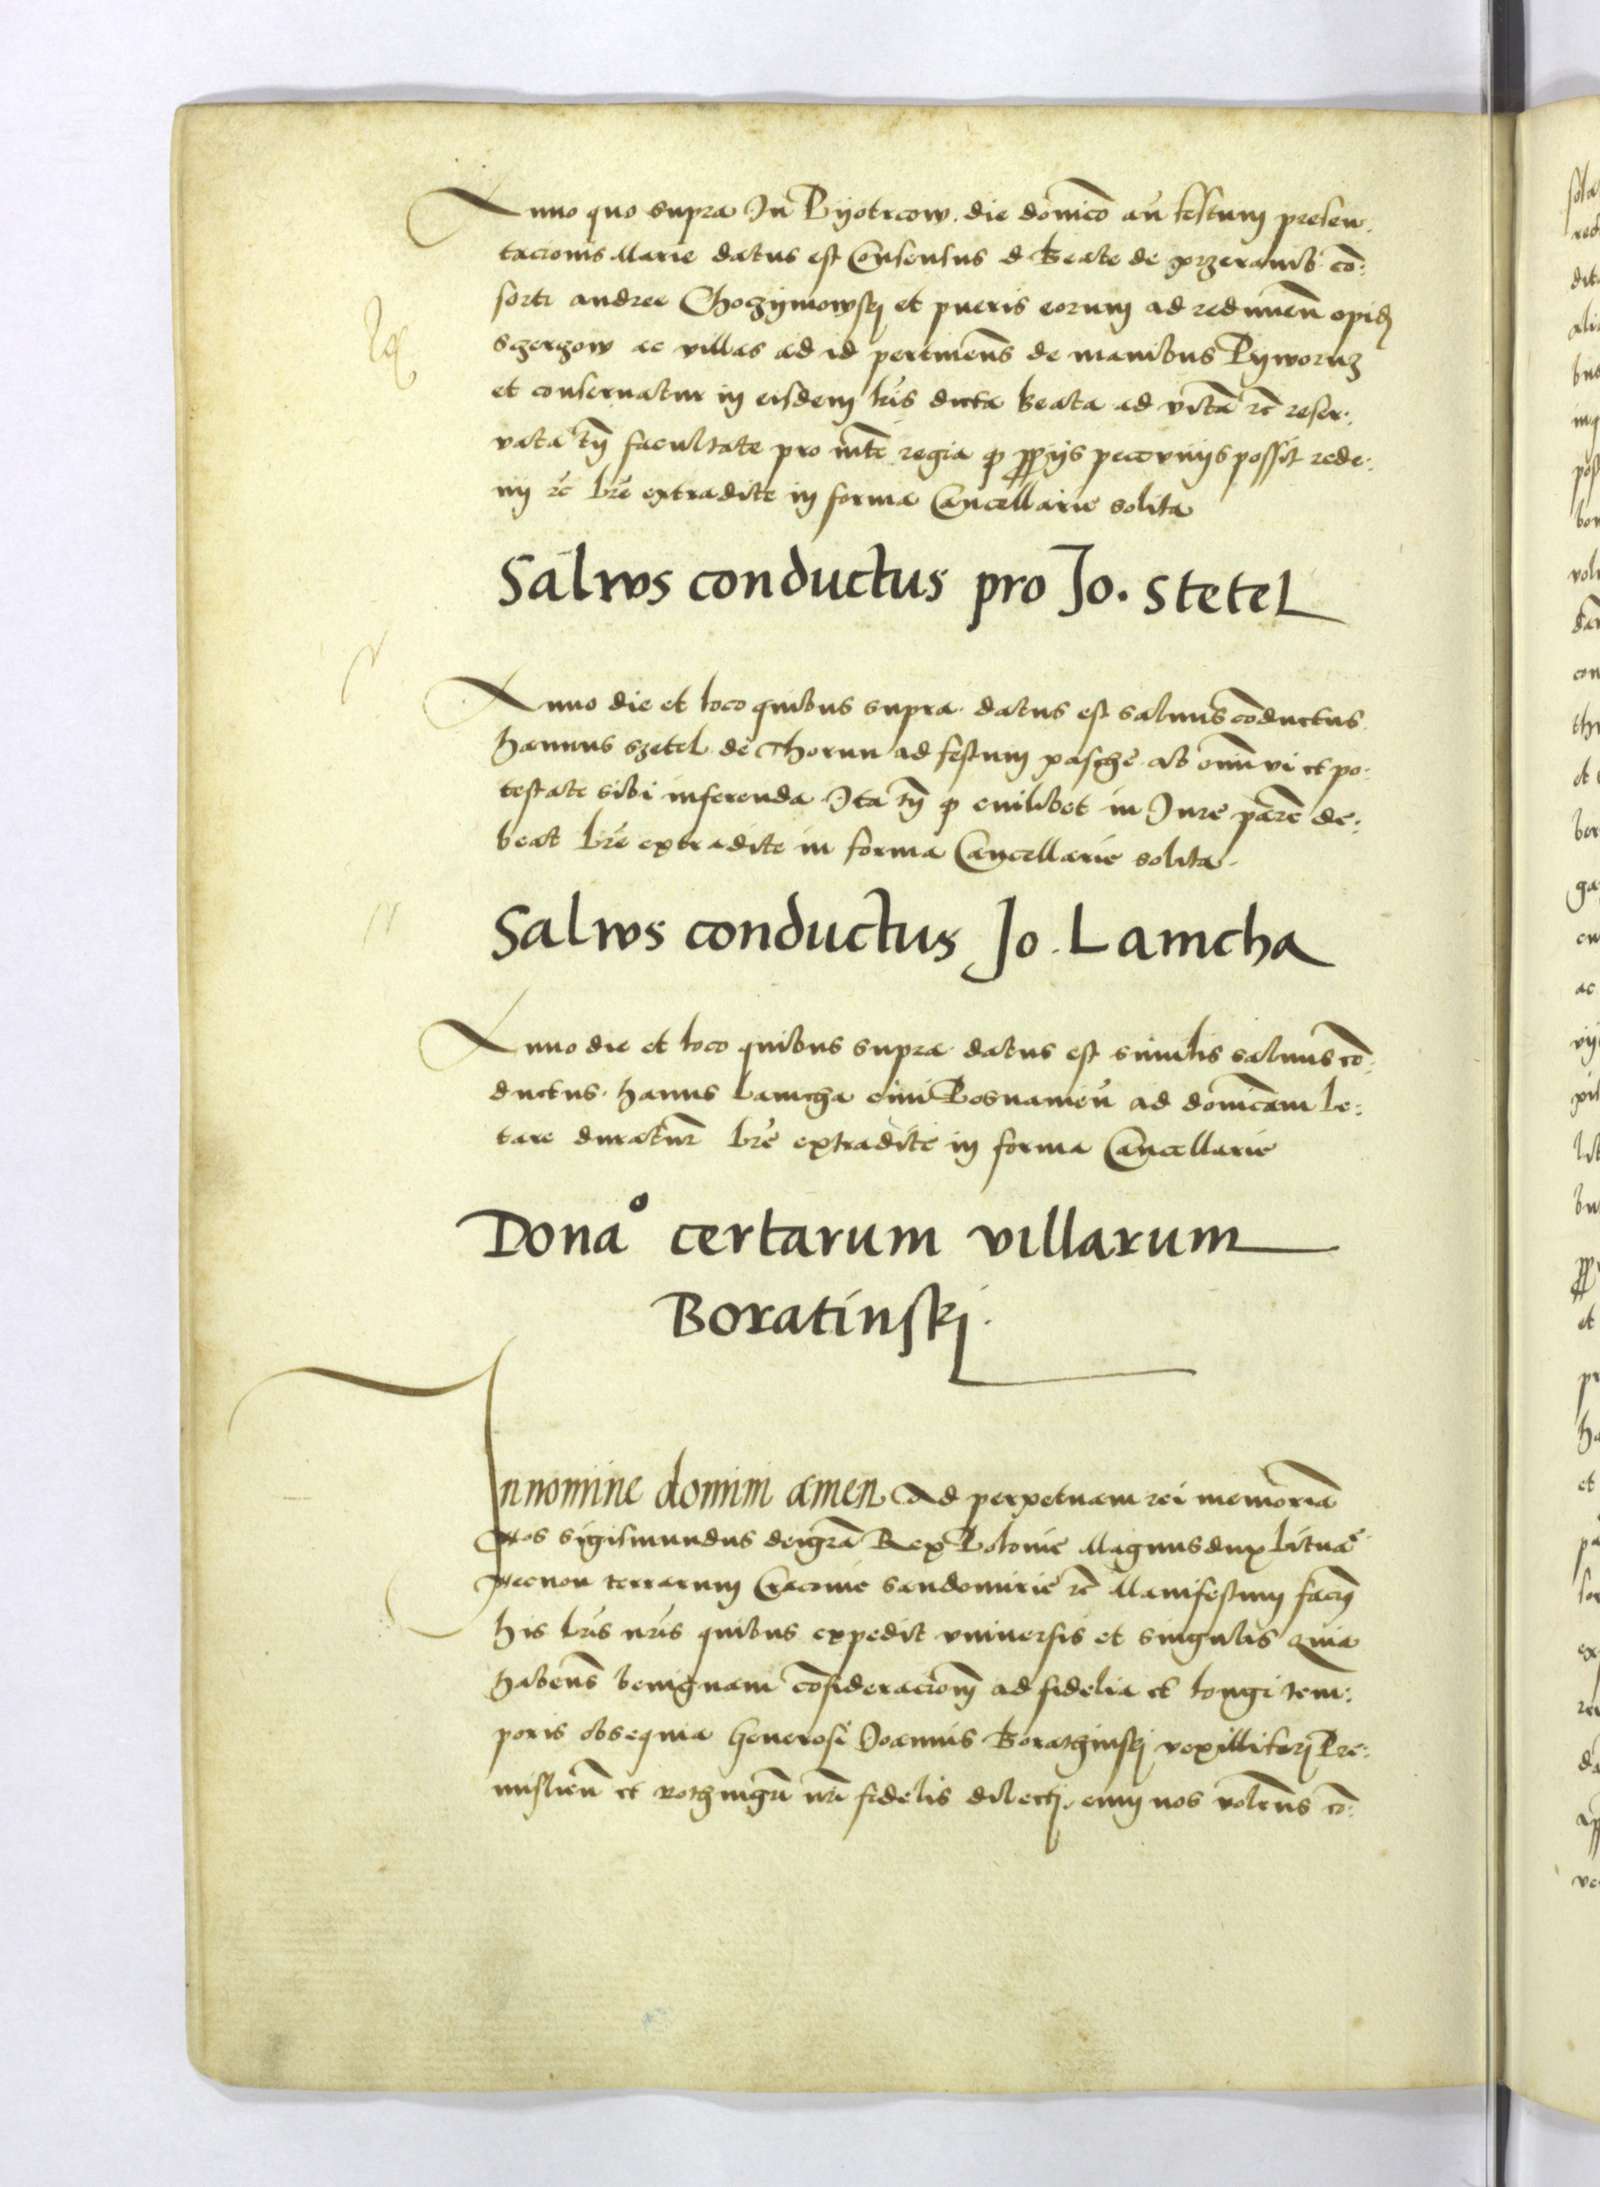 Anno quo supra In Pyotrcow. die dominico an̄ festum presen-
tacionis Marie datus est Consensus d Beate de przeramb cō:
sorti andree Choczymowskj et pueris eorum ad redimen̄ opid
Szczerzow ac villas ad id pertinen̄s de manibus Pyworuz
et conservatur in eisdem br̄is dicta Beata ad vitā rc̄ reser:
vata tn̄ facultate pro mtē regia q̄ ppr̄ijs pecunijs possit rede:
mi rc̄ lr̄e extradite in forma Cancellarie solita
Salvus conductus pro Jo. Stetel
Anno die et loco quibus supra datus est salvus cōductus
hannus Szetel de Thorun ad festum pasche ab omi vi et po:
testate sibi inferenda Ita tn̄ q̄ cuilibet in Jure parē de:
beat lr̄e extradite in forma Cancellarie solita.
Salvus conductus Jo. Lamcha
Anno die et loco quibus supra datus est similis salvus cō:
ductus. hanus Lamcha civi Posnanien̄ ad dominicam le:
tare duratur̄ lr̄e extradite in forma Cancellarie
Donaº certarum villarum
Boratinskj.
In nomine domini amen Ad perpetuam rei memoriā
Nos Sigismundus dei grā Rex Polonie Magnus dux Lituā
Necnon terrarum Cracovie Sandomirie rc̄ Manifestum facim̄
his lr̄is nr̄is quibus expedit universis et singulis Quia
haben̄s benignam cōsideracionē ad fidelia et longi tem:
poris obsequia Generosi Joannis Borathinskj vexilliferj Pre:
mislien̄ et rothmgr̄i nr̄i fidelis dilectj. eum nos volen̄s cō: